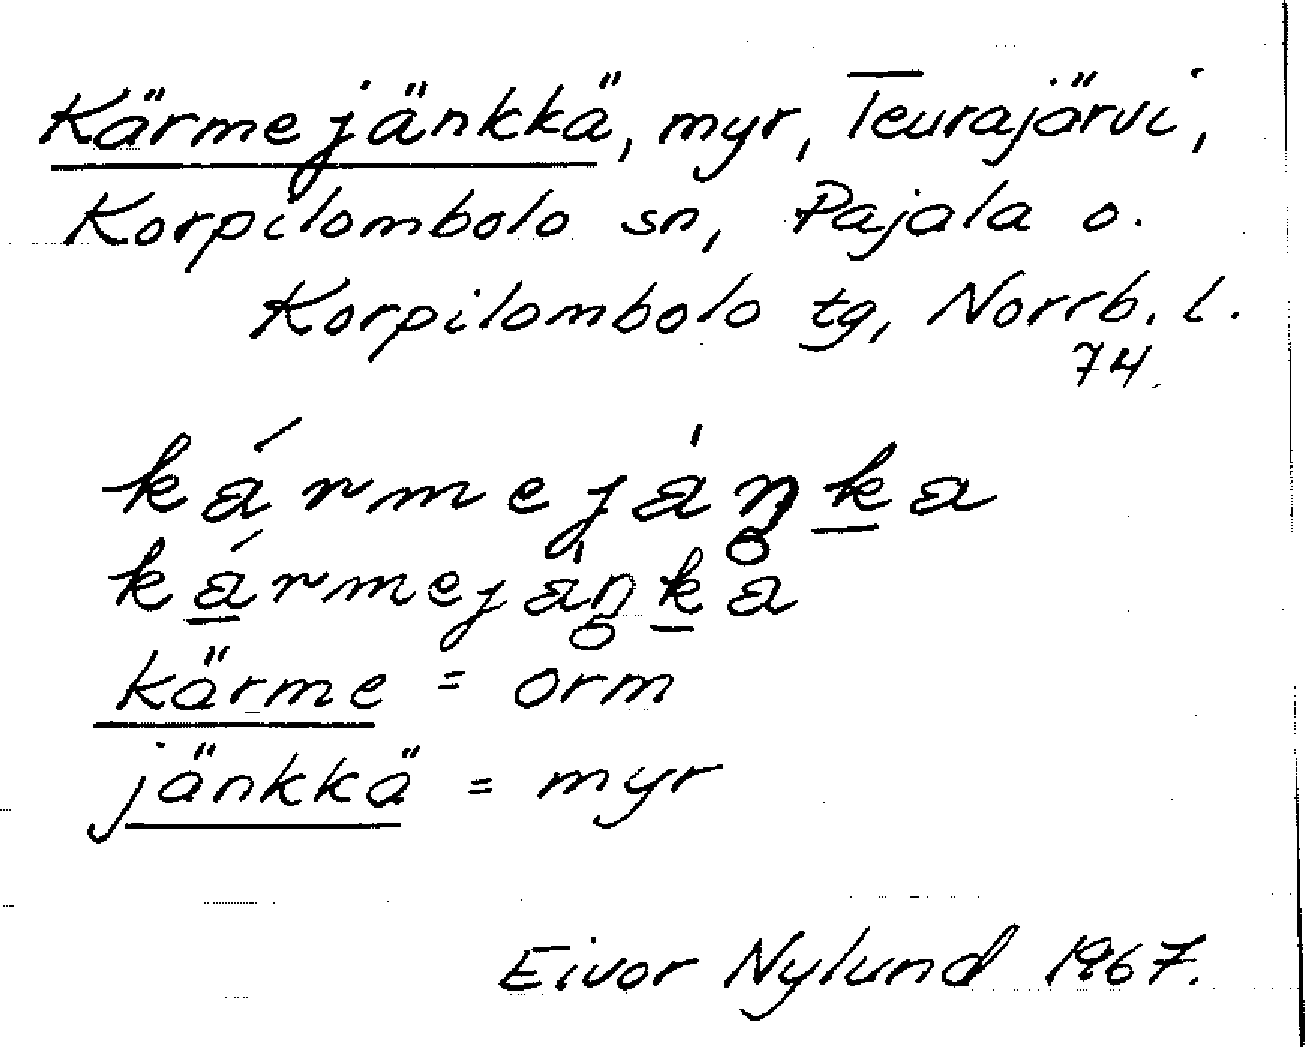 Kärmejänkkä, myr, Teurajärvi,
Korpilombolo sn, Pajala o.
Korpilombolo tg, Norrb. l.
74.
kármejáŋka
kármejáŋka
kärme = orm
jänkkä = myr
Eivor Nylund 1967.